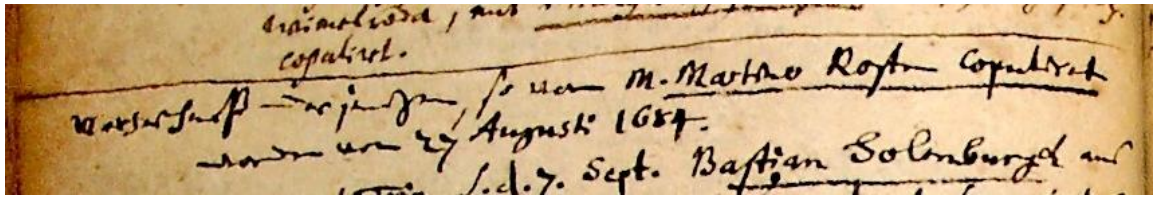 copuliret.
Verzeichniß derjenigen, so von M. Martino Rosten Copuliret
worden vom 27 Augusti 1684.
s. d. 7. Sept. Bastian Solenburgk aus